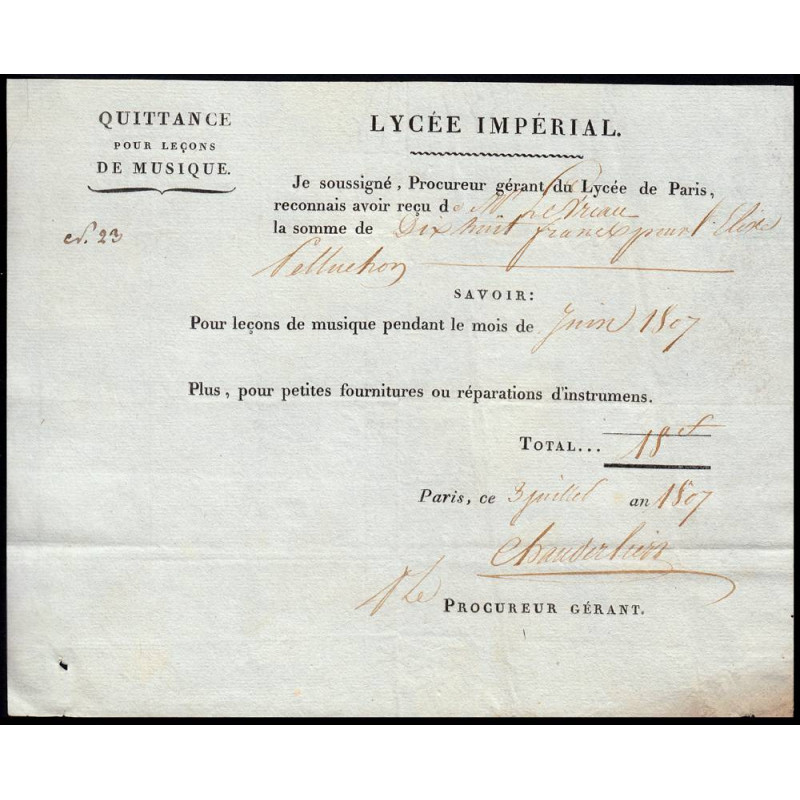 QUITTANCE
POUR LEÇONS
DE MUSIQUE.
LYCÉE IMPÉRIAL.
Je soussigné, Procureur gérant du Lycée de Paris,
reconnais avoir reçu de Mr
la somme de Dix huit francs pour l'Elève
Pelluchon
N. 23
SAVOIR:
Pour leçons de musique pendant le mois de Juin 1807
Plus, pour petites fournitures ou réparations d'instrumens.
TOTAL... 18
Paris, ce 3 juillet an 1807
Le
PROCUREUR GÉRANT.